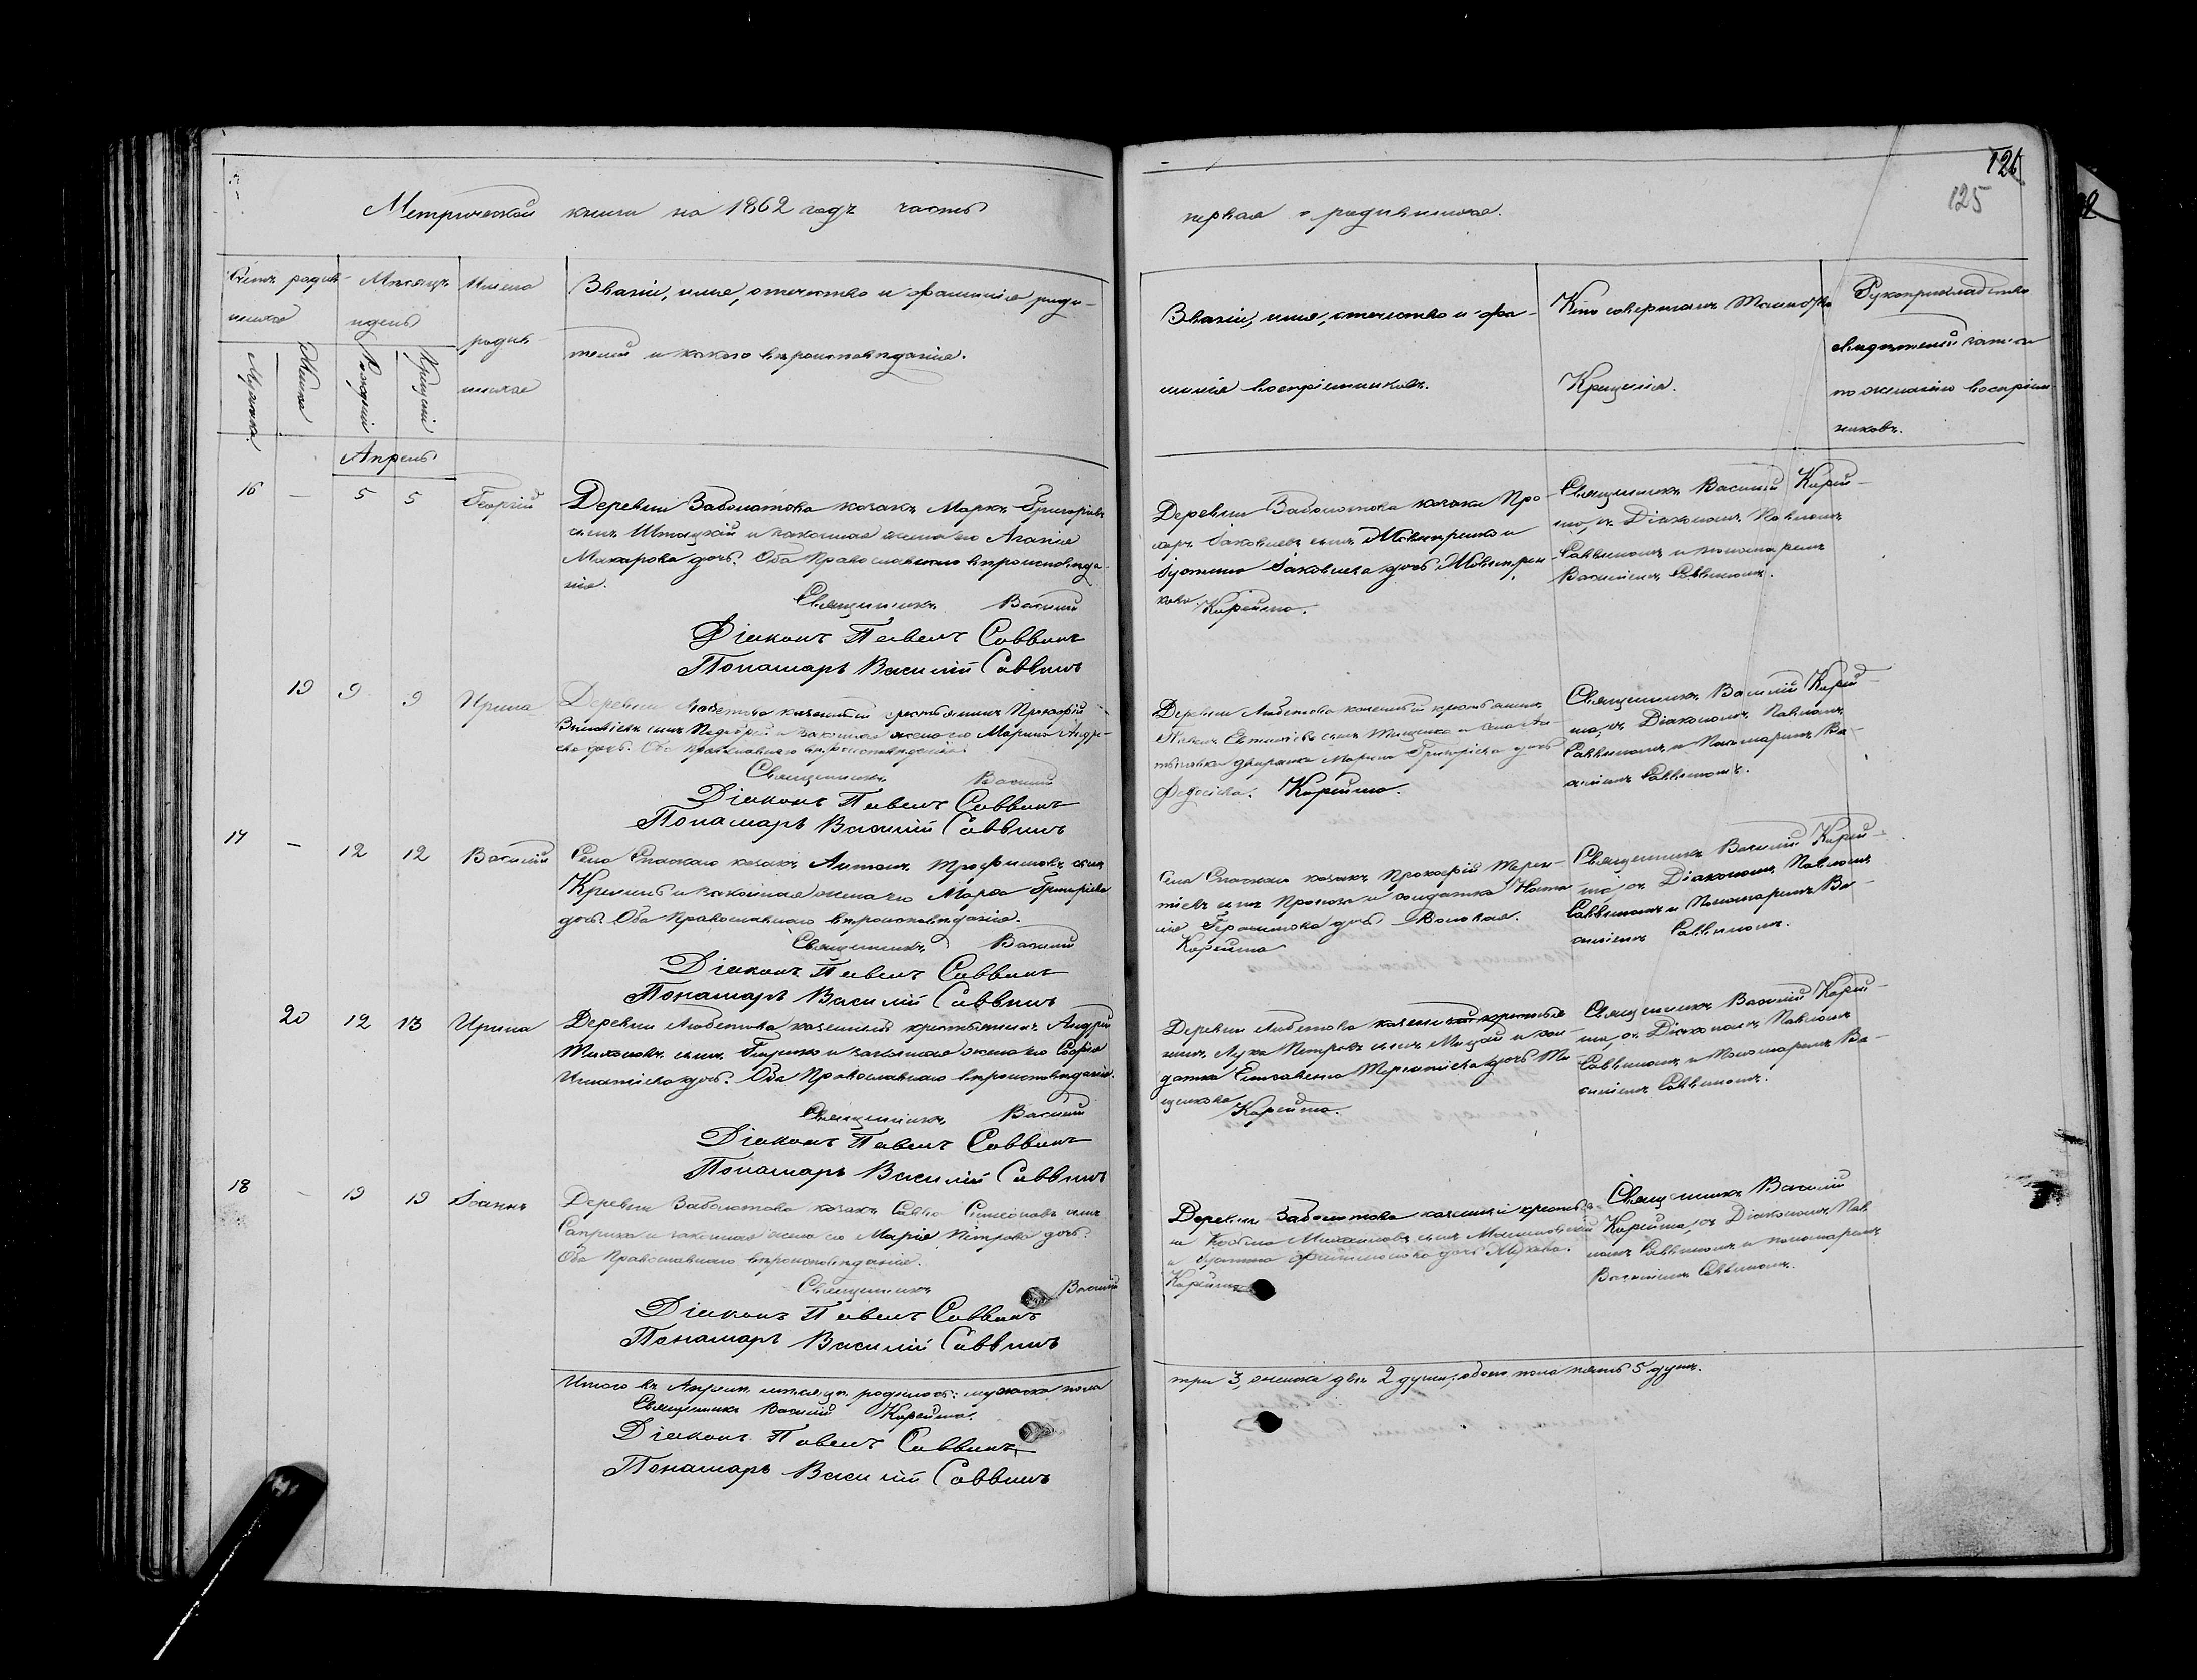 126
125
Метрической книги на 1862 годъ часть
первая о родившихся.
Счетъ родив-
шихся
Мужеска
Женска
Мѣсяцъ
и день
Рожденія
Крещенія
Имена
родив-
шихся
Званіе, имя, отечество и фамилія роди-
телей и какого вѣроисповѣданія.
Званіе, имя, отечество и фа-
милія воспріемниковъ.
Кто совершалъ Таинство
Крещенія.
Рукоприкладство
свидѣтелей записи
по желанію воспріем
никовъ.
Апрель
16 – 5 5 Георгій
Деревни Заболотова козакъ Марко Григоріевъ
сынъ и законная жена его Агафія
Макарова дочь. Оба Православнаго вѣроисповѣда-
нія.
Священникъ Василій
Діаконъ Павелъ Саввинъ
Пономарь Василій Саввинъ
Деревни Заболотова козаки Про-
хоръ Іаковлевъ сынъ
Іустина Іаковлева дочь
кова. Карейша.
Священникъ Василій Карей-
ша, съ Діакономъ Павломъ
Саввиномъ и пономаремъ
Василіемъ Саввиномъ.
19 9 9 Ирина
Деревни Любетова казенный крестьянинъ Прокофій
сынъ и законная жена его Марина Андре-
ева дочь. Оба православнаго вѣроисповѣданія.
Священникъ Василій
Діаконъ Павелъ Саввинъ
Пономарь Василій Саввинъ
Деревни Любетова казенный крестьянинъ
Павелъ сынъ и села
дворянка Марина Григоріева дочь
Федосіева. Карейша.
Священникъ Василій Карей-
ша, съ Діакономъ Павломъ
Саввиномъ и Пономаремъ Ва-
силіемъ Саввиномъ.
17 – 12 12 Василій
Села Спаскаго козакъ Антонъ Трофимовъ сынъ
Кремень и законная жена его Марфа Григоріева
дочь. Оба Православнаго вѣроисповѣданія.
Священникъ Василій
Діаконъ Павелъ Саввинъ
Пономарь Василій Саввинъ
Села Спаскаго козакъ Прокофій Терен-
тіевъ сынъ и солдатка Ната-
лія дочь
Карейша
Священникъ Василій Карей-
ша, съ Діакономъ Павломъ
Саввиномъ и Пономаремъ Ва-
силіемъ Саввиномъ.
20 12 13 Ирина
Деревни Любетова казенный крестьянинъ Андрей
Тихоновъ сынъ и законная жена его Софія
Игнатіева дочь. Оба Православнаго вѣроисповѣданія.
Священникъ Василій
Діаконъ Павелъ Саввинъ
Пономарь Василій Саввинъ
Деревни Любетова казенный крестья
нинъ Лука Петровъ сынъ и сол-
датка Елисавета Терентіева дочь Ти
щенкова
Карейша.
Священникъ Василій Карей-
ша, съ Діакономъ Павломъ
Саввиномъ и Пономаремъ Ва-
силіемъ Саввиномъ.
18 – 19 19 Іоаннъ
Деревни Заболотова козакъ Савва Симеоновъ сынъ
и законная жена его Марія Петрова дочь.
Оба Православнаго вѣроисповѣданія.
Священникъ Василій
Діаконъ Павелъ Саввинъ
Пономарь Василій Саввинъ
Деревни Заболотова казенный крестья-
Козьма сынъ
и Іустина Филимонова дочь
Карейша
Священникъ Василій
Карейша, съ Діакономъ Пав
ломъ Саввиномъ и пономаремъ
Василіемъ Саввиномъ.
Итого въ Апрелѣ мѣсяцѣ родилось: мужеска пола
три 3, женска двѣ 2 души, обоего пола пять 5 душъ.
Священникъ Василій Карейша.
Діаконъ Павелъ Саввинъ
Пономарь Василій Саввинъ